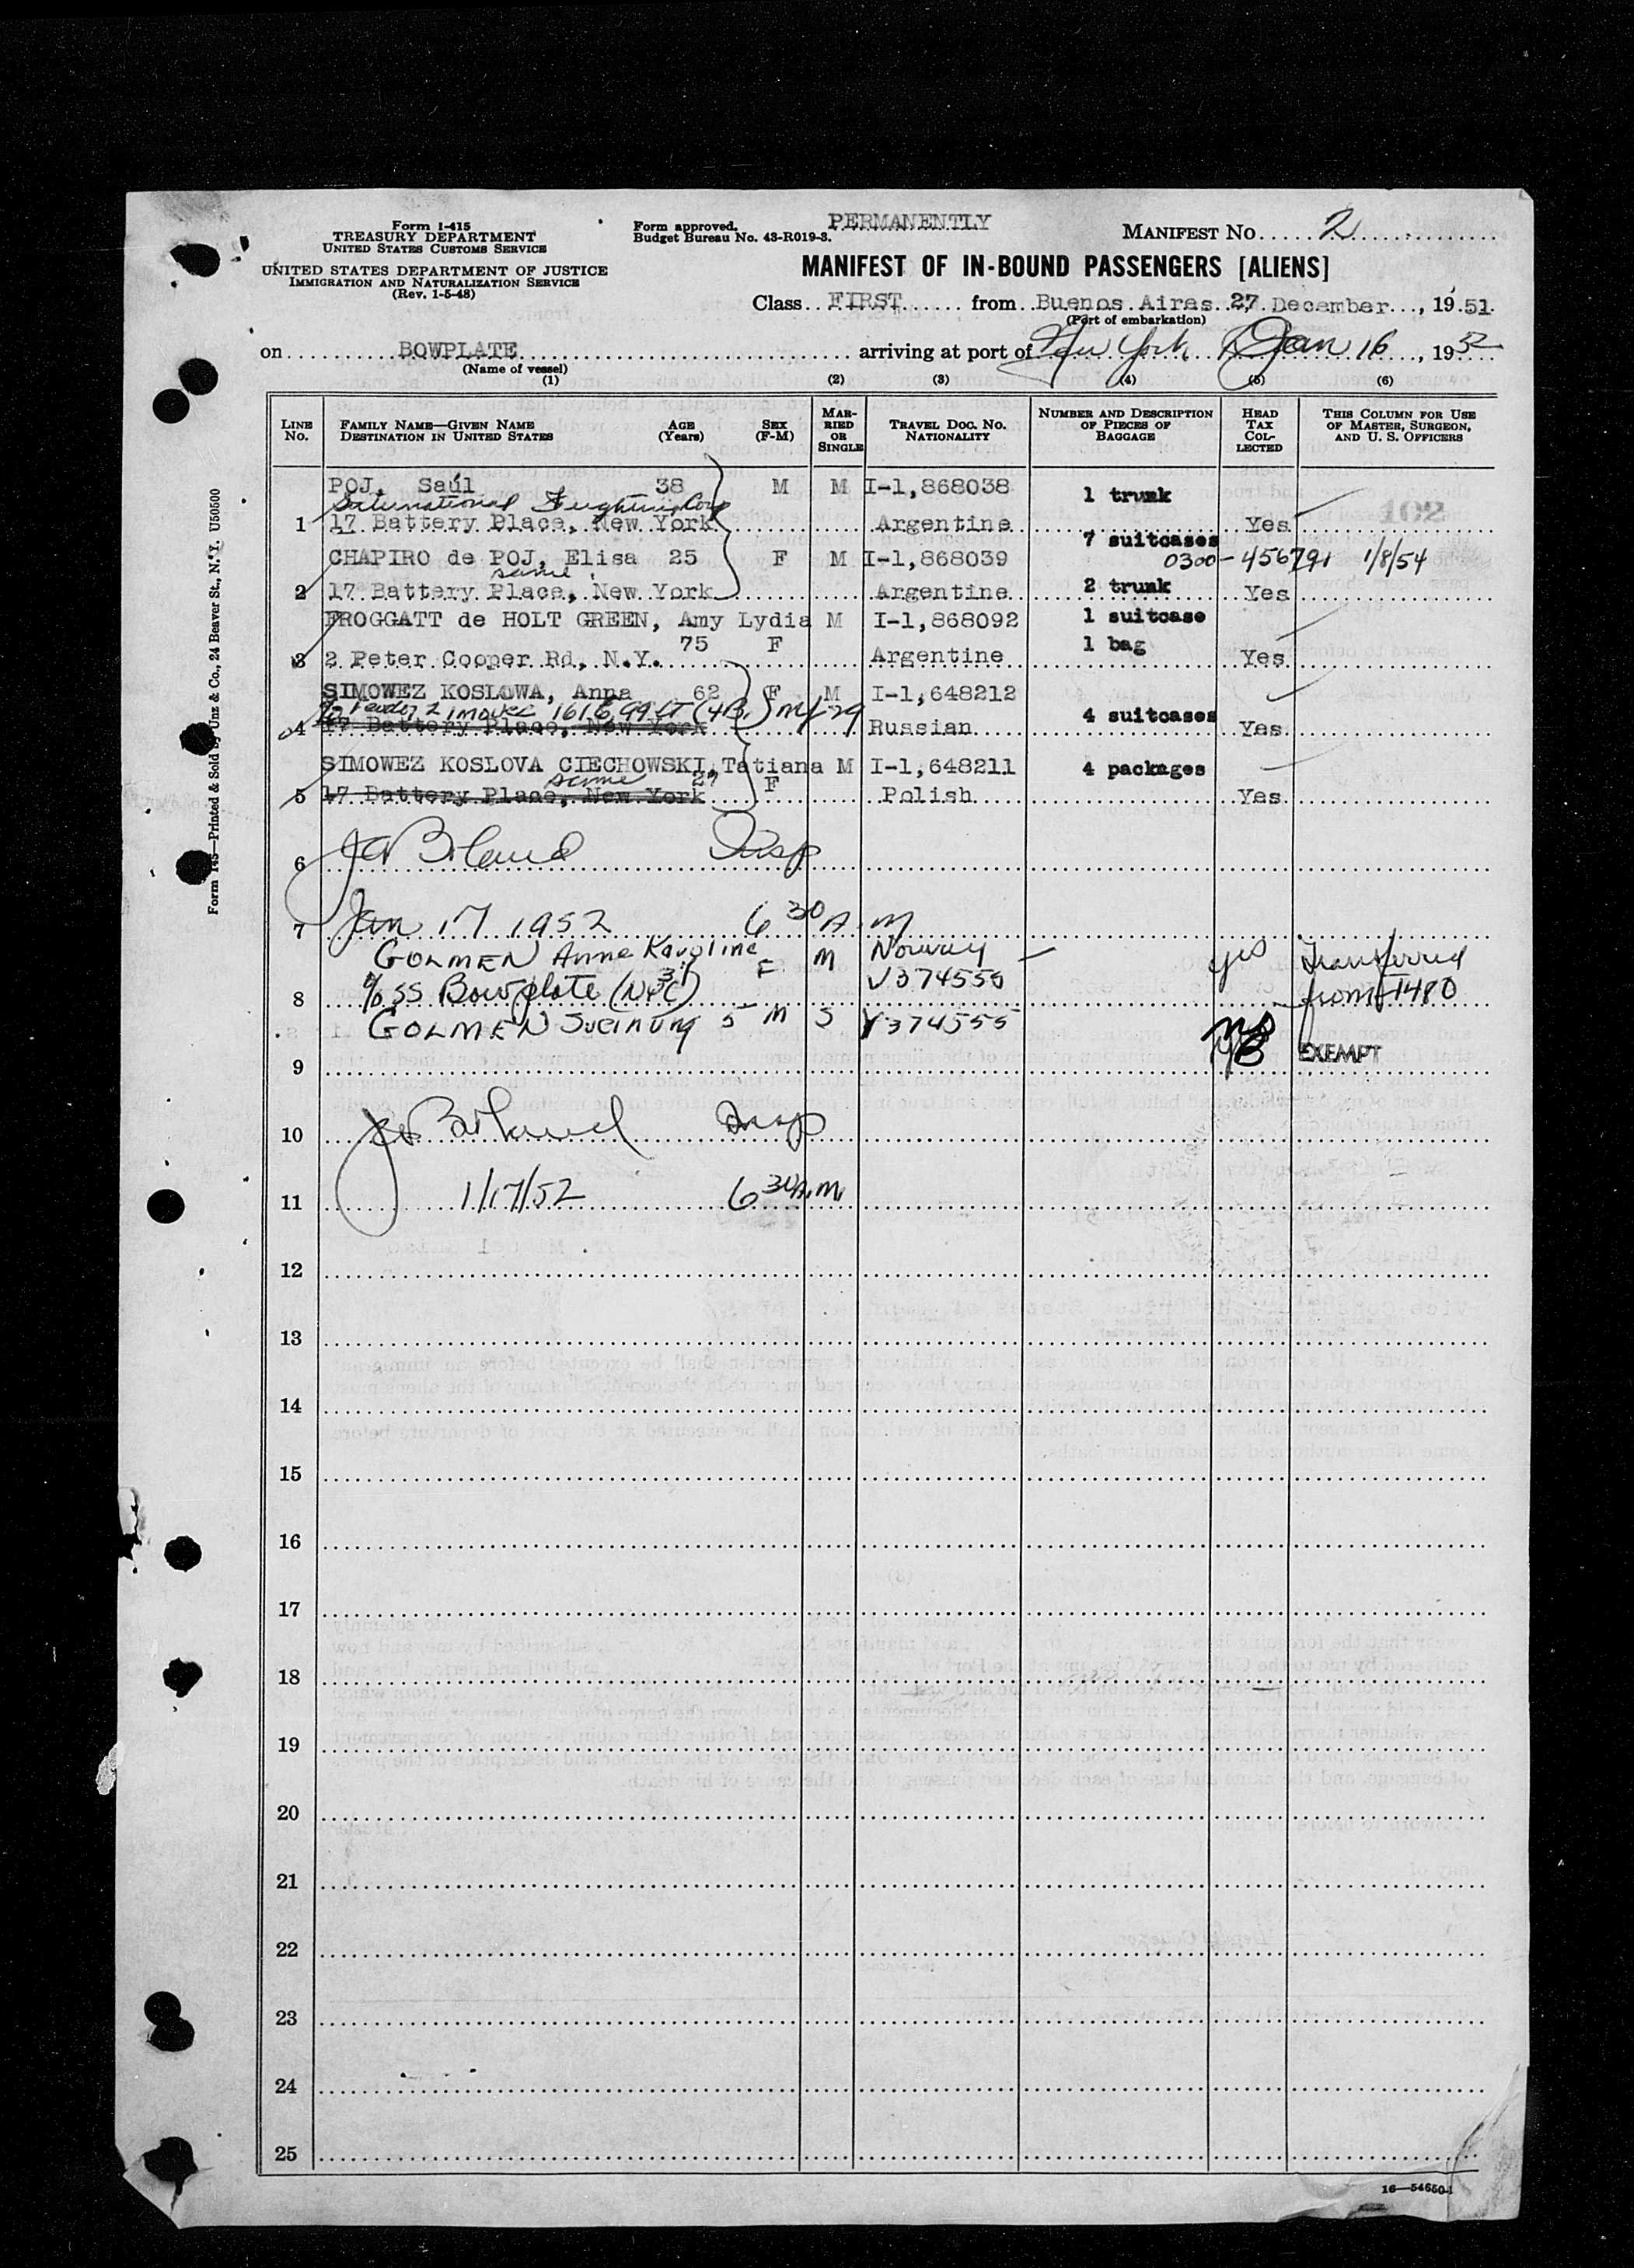 Form I-415
TREASURY DEPARTMENT
UNITED STATES CUSTOMS SERVICE
UNITED STATES DEPARTMENT OF JUSTICE
IMMIGRATION AND NATURALIZATION SERVICE
(Rev. 1-5-48)
Form approved.
Budget Bureau No. 43-R019-3.
PERMANENTLY
MANIFEST No. 2
MANIFEST OF IN-BOUND PASSENGERS [ALIENS]
Class FIRST from Buenos Aires 27 December, 1951
(Port of embarkation)
on BOWPLATE arriving at port of New York Jan 16, 1952
(Name of vessel)
(1) (2) (3) (4) (5) (6)
LINE No. FAMILY NAME—GIVEN NAME DESTINATION IN UNITED STATES AGE (Years) SEX (F-M) MARRIED OR SINGLE TRAVEL DOC. NO. NATIONALITY NUMBER AND DESCRIPTION OF PIECES OF BAGGAGE HEAD TAX COLLECTED THIS COLUMN FOR USE OF MASTER, SURGEON, AND U. S. OFFICERS
POJ, Saúl 38 M M I-1,868038 1 trunk
International Corp
1 17 Battery Place, New York Argentine Yes 102
7 suitcases
CHAPIRO de POJ, Elisa 25 F M I-1,868039 0300-456791 1/8/54
same
2 17 Battery Place, New York Argentine 2 trunk Yes
FROGGATT de HOLT GREEN, Amy Lydia M I-1,868092 1 suitcase
75 F 1 bag
3 2 Peter Cooper Rd, N.Y. Argentine Yes
SIMOWEZ KOSLOWA, Anna 62 F M I-1,648212
1616
4 17 Battery Place, New York Russian 4 suitcases Yes
SIMOWEZ KOSLOVA CIECHOWSKI, Tatiana M I-1,648211 4 packages
same 29 F
5 17 Battery Place, New York Polish Yes
6 Insp
7 Jan 17 1952 6 30 A.M
GOLMEN Anne Karoline F M Norway yes Transferred
8 c/o SS Bowplate (NYC) 31 V374555 from I480
GOLMEN Sveinung 5 M S V374555
9 EXEMPT
10 Insp
11 1/17/52 6 30 A.M.
12
13
14
15
16
17
18
19
20
21
22
23
24
25
16—54650-1
Form 145—Printed & Sold by Unz & Co., 24 Beaver St., N. Y. U50500